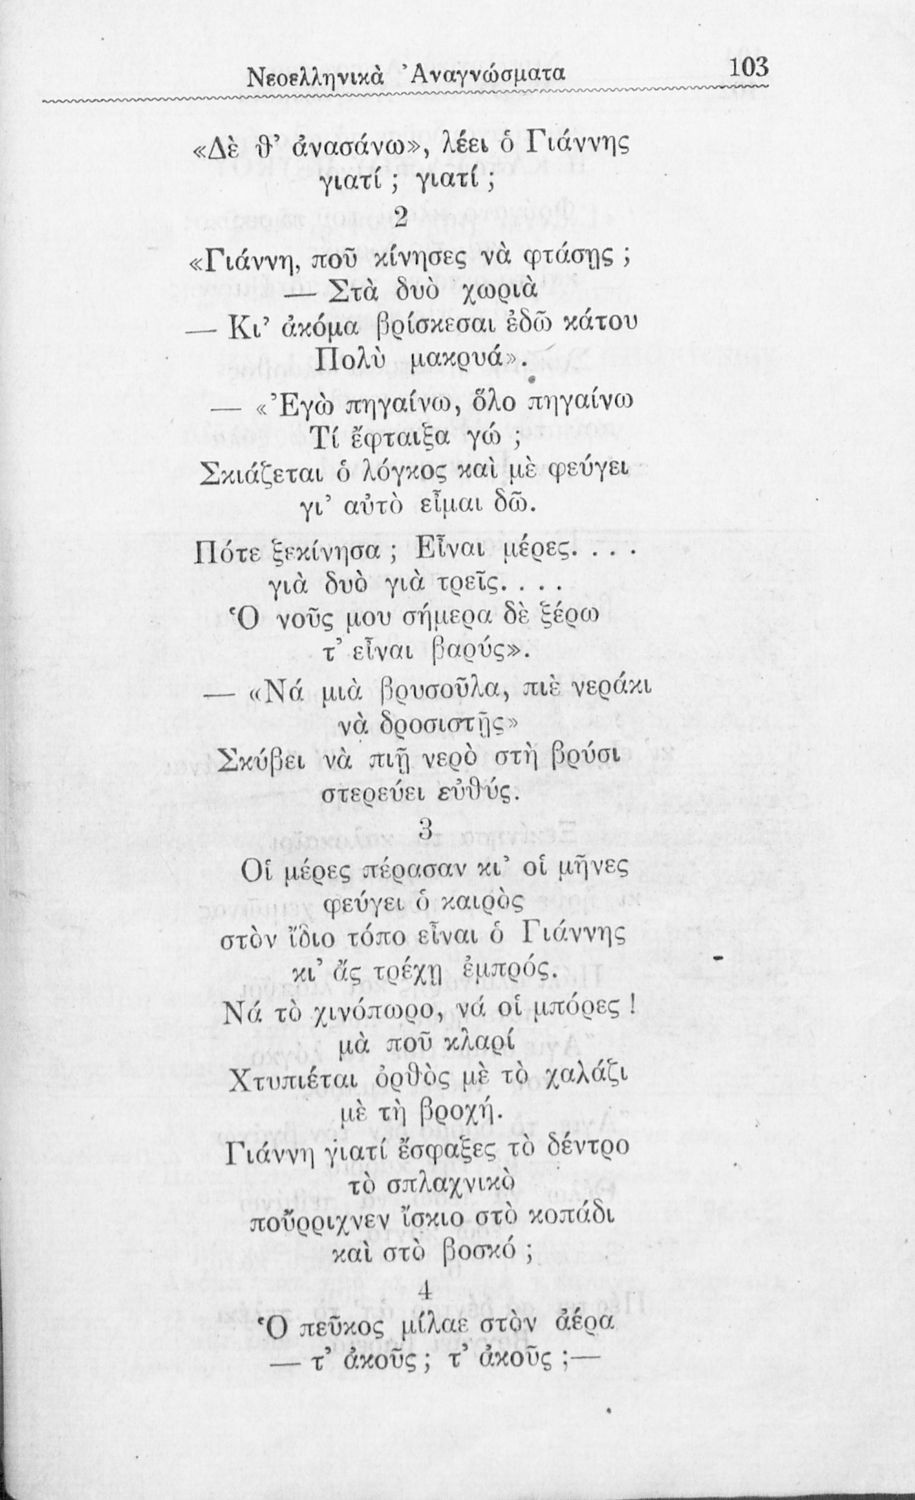 Νεοελληνικὰ Ἀναγνώσματα 103
«Δὲ θ’ ἀνασάνω», λέει ὁ Γιάννης
γιατί ; γιατί ;
2
«Γιάννη, ποῦ κίνησες νὰ φτάσῃς ;
— Στὰ δυὸ χωριὰ
— Κι’ ἀκόμα βρίσκεσαι ἐδῶ κάτου
Πολὺ μακρυά».
— «Ἐγὼ πηγαίνω, ὅλο πηγαίνω
Τί ἔφταιξα γώ ;
Σκιάζεται ὁ λόγκος καὶ μὲ φεύγει
γι’ αὐτὸ εἶμαι δῶ.
Πότε ξεκίνησα ; Εἶναι μέρες. . . .
γιὰ δυὸ γιὰ τρεῖς. . . .
Ὁ νοῦς μου σήμερα δὲ ξέρω
τ’ εἶναι βαρύς».
— «Νά μιὰ βρυσοῦλα, πιὲ νεράκι
νὰ δροσιστῇς»
Σκύβει νὰ πιῇ νερὸ στὴ βρύσι
στερεύει εὐθύς.
3
Οἱ μέρες πέρασαν κι’ οἱ μῆνες
φεύγει ὁ καιρὸς
στὸν ἴδιο τόπο εἶναι ὁ Γιάννης
κι’ ἄς τρέχῃ ἐμπρός.
Νά τὸ χινόπωρο, νά οἱ μπόρες !
μὰ ποῦ κλαρί
Χτυπιέται ὀρθὸς μὲ τὸ χαλάζι
μὲ τὴ βροχή.
Γιάννη γιατί ἔσφαξες τὸ δέντρο
τὸ σπλαχνικὸ
ποὔρριχνεν ἴσκιο στὸ κοπάδι
καὶ στὸ βοσκό ;
4
Ὁ πεῦκος μίλαε στὸν ἀέρα
— τ’ ἀκοῦς ; τ’ ἀκοῦς ;—